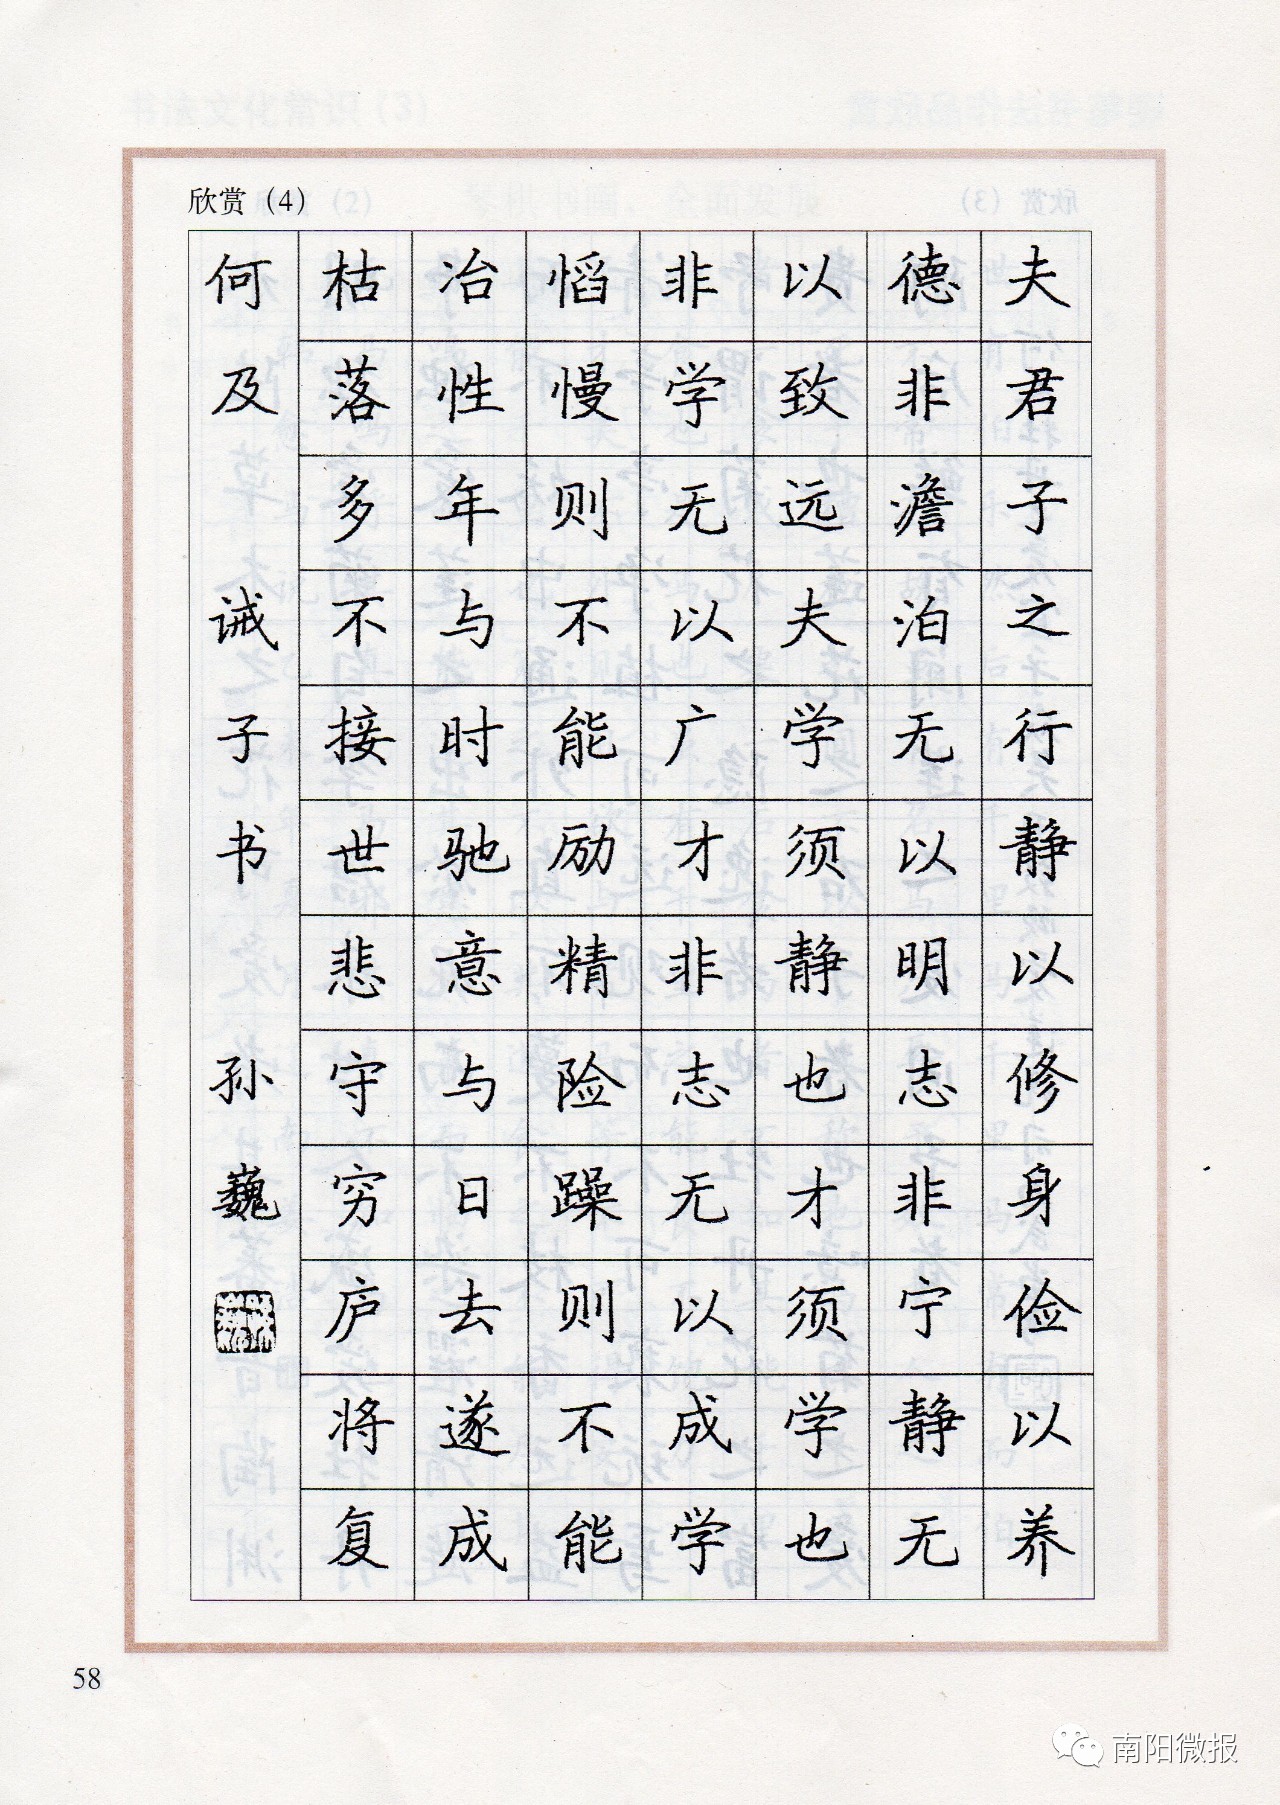 欣赏（4）
夫君子之行静以修身俭以养
德非澹泊无以明志非宁静无
以致远夫学须静也才须学也
非学无以广才非志无以成学
慆慢则不能励精险躁则不能
冶性年与时驰意与日去遂成
枯落多不接世悲守穷庐将复
何及
诫子书
孙巍
58
南阳微报